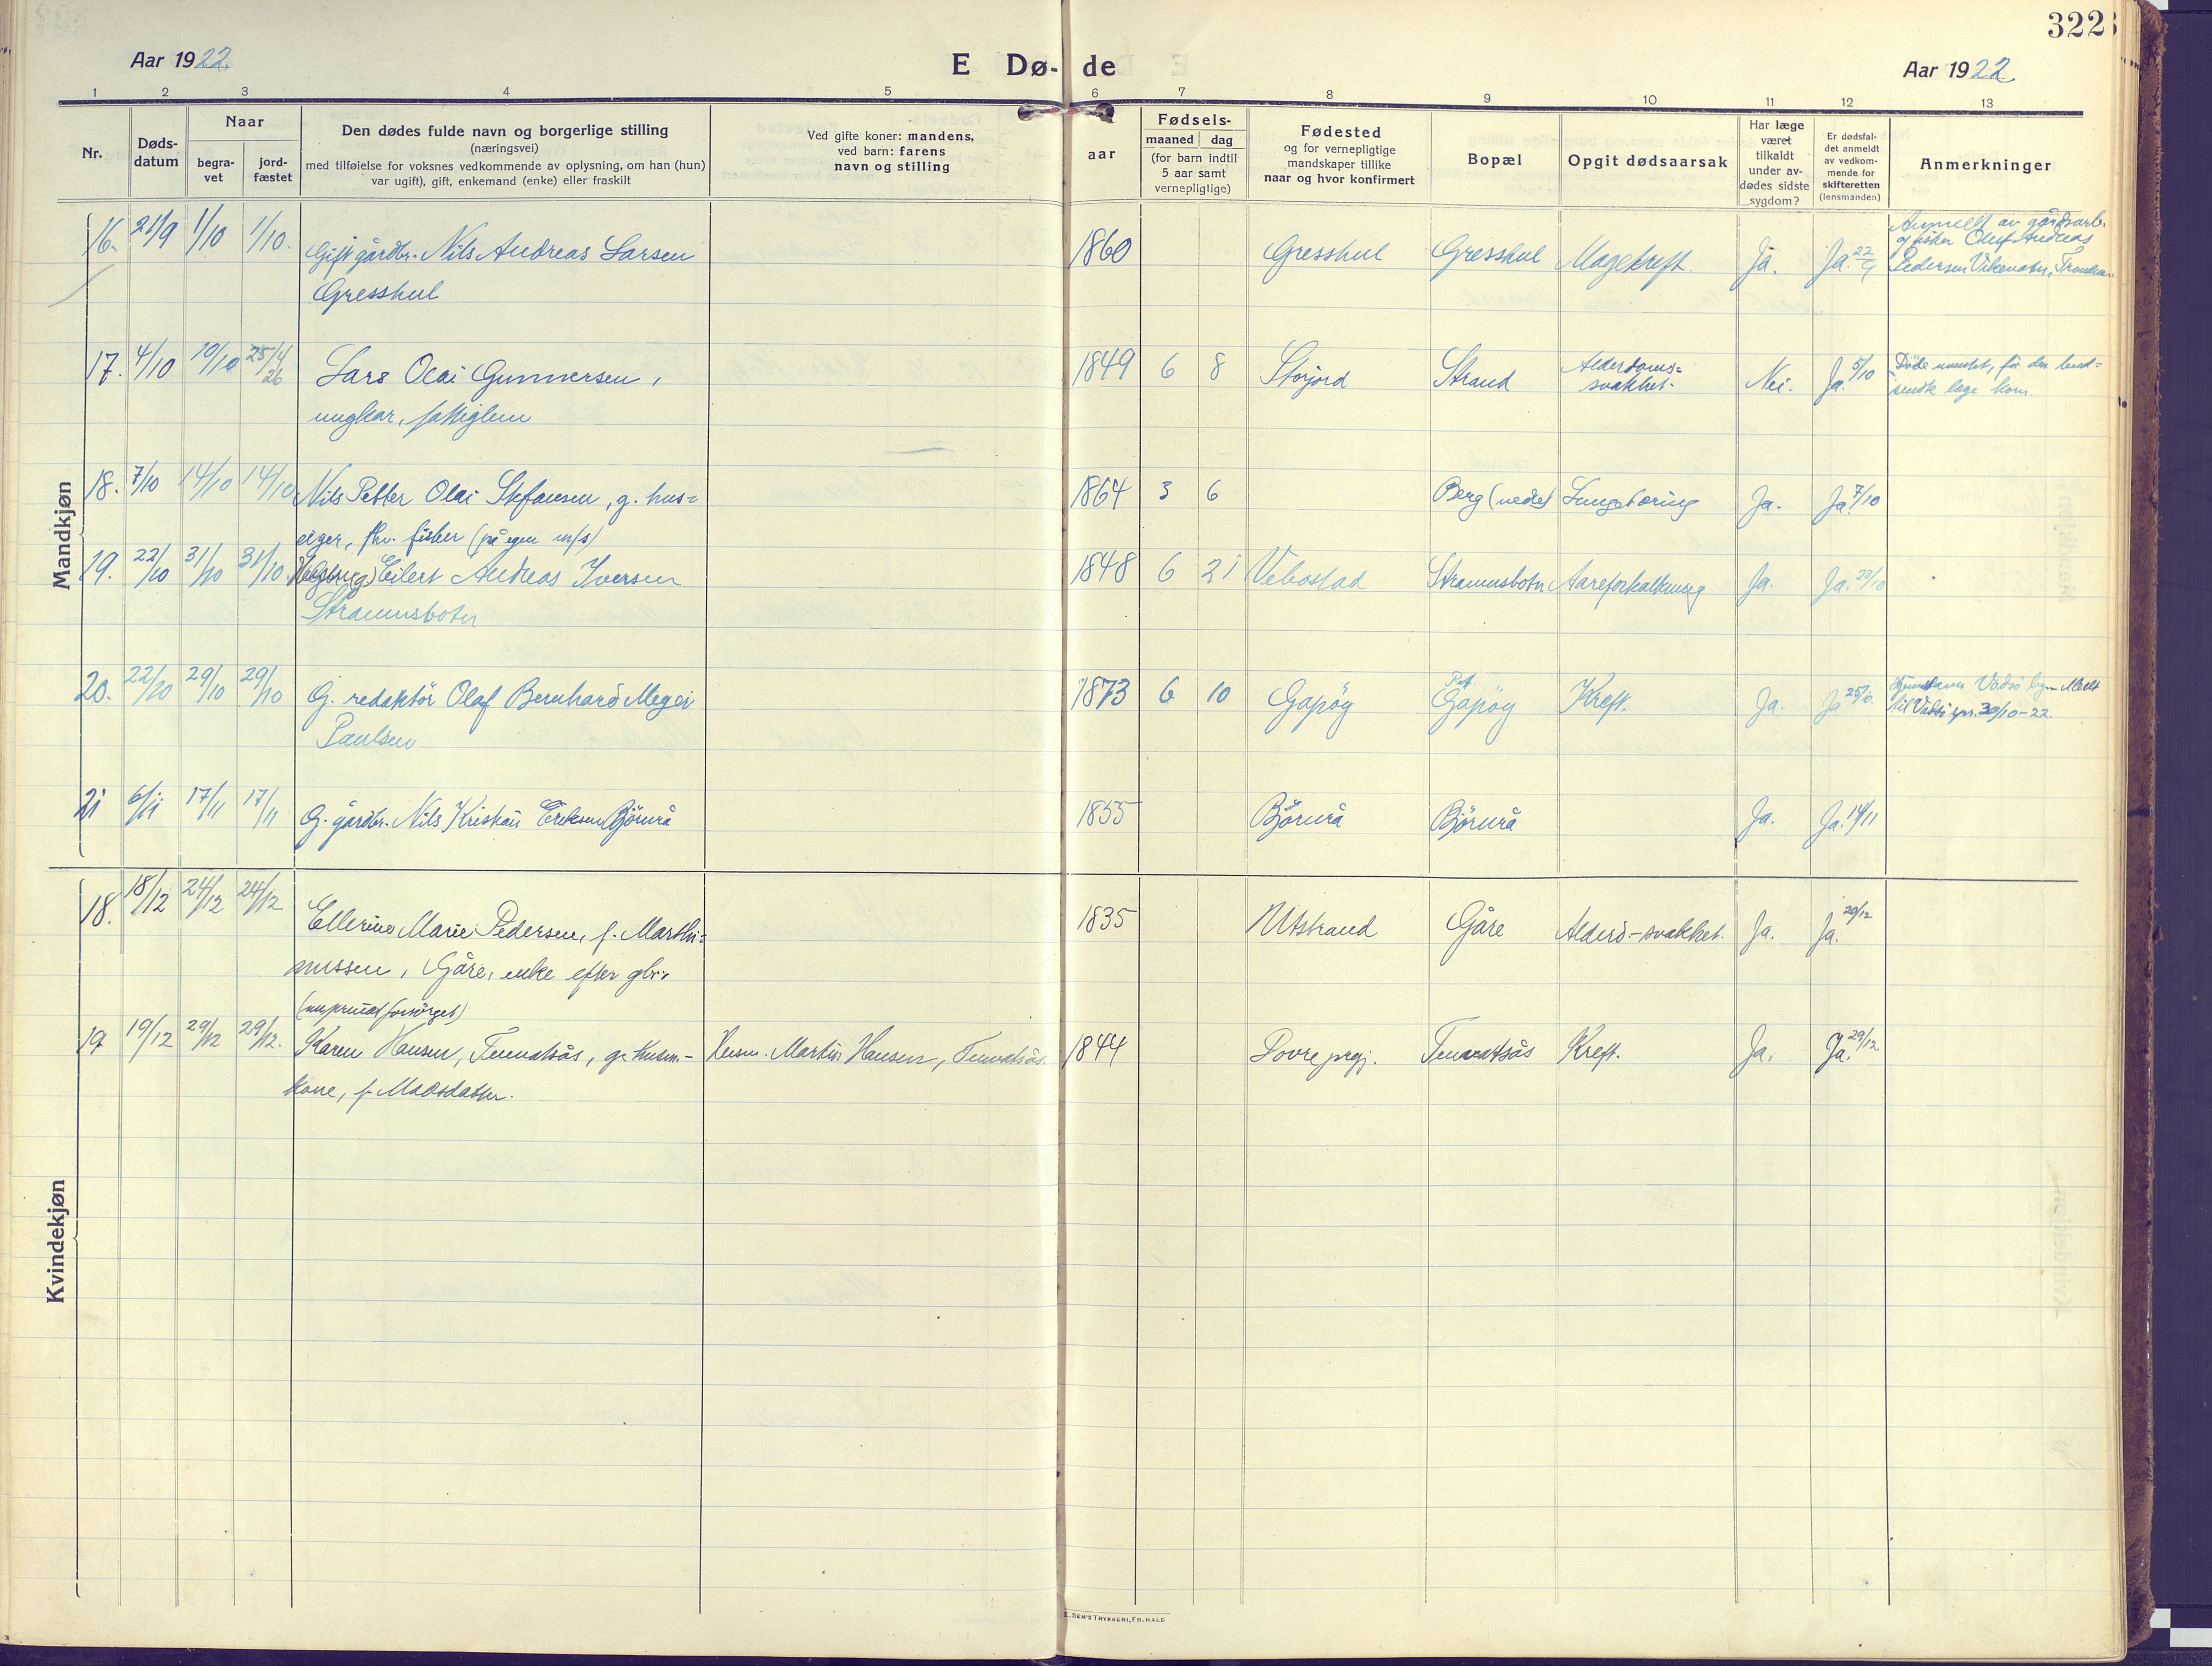 322
Aar 1922.
E Dø- de
Aar 1922.
1 2 3 4 5 6 7 8 9 10 11 12 13
Nr.
Døds-
datum
Naar
begra-
vet
jord-
fæstet
Den dødes fulde navn og borgerlige stilling
(næringsvei)
med tilføielse for voksnes vedkommende av oplysning, om han (hun)
var ugift), gift, enkemand (enke) eller fraskilt
Ved gifte koner: mandens,
ved barn: farens
navn og stilling
aar
Fødsels-
maaned dag
(for barn indtil
5 aar samt
vernepligtige)
Fødested
og for vernepligtige
mandskaper tillike
naar og hvor konfirmert
Bopæl
Opgit dødsaarsak
Har læge
været
tilkaldt
under av-
dødes sidste
sygdom?
Er dødsfal-
det anmeldt
av vedkom-
mende for
skifteretten
(lensmanden)
Anmerkninger
Mandkjøn
16. 21/9 1/10 1/10. Gift gårdbr. Nils Andreas Larsen
Gresshul
1860 Gresshul Gresshul Magekreft. Ja. Ja. 22/9
Anmeldt av gårdsarb.
og fisker Oluf Andreas
Pedersen Vikevatn,
17. 4/10 10/10 25/4 26 Lars Olai Gunnersen,
ungkar, fattiglem
1849 6 8 Storjord Strand Alderdoms=
svakhet. Nei. Ja. 5/10
Døde uventet, før den bud=
sendte læge kom.
18. 7/10 14/10 14/10 Nils Petter Olai Stefansen, g. hus=
eiger, fhv. fisker (på egen m/s)
1864 3 6 Berg (nedre) Lungetæring Ja. Ja. 7/10
19. 22/10 31/10 31/10 Eilert Andreas Iversen
Straumsbotn
1848 6 21 Vebostad Straumsbotn Aareforkalkning Ja. Ja. 23/10
20. 22/10 29/10 29/10 G. redaktør Olaf Bernhard Meyer
Paulsen
1873 6 10 Gapøy Gapøy Kreft. Ja. Ja 25/10.
Vadsø Meldt
til Vadsø spr. 30/10-22.
21 6/11 17/11 17/11 G. gårdbr. Nils Kristian Eriksen Bjørnrå
1855 Bjørnrå Bjørnrå Ja. Ja. 14/11
Kvindekjøn
18. 18/12 24/12 24/12 Ellerine Marie Pedersen, f. Marthi=
nussen, Gåre, enke efter gbr.
1835 Utstrand Gåre Alderd.-svakhet. Ja. Ja. 20/12
19 19/12 29/12 29/12. Karen Hansen, Tennatsås, g. husm.-
kone, f. Madsdatter.
Husm. Martin Hansen, Tennatsås.
1844 Dovre prgj. Tennatsås Kreft. Ja. Ja. 29/12
E. SEM'S TRYKKERI, FR.HALD